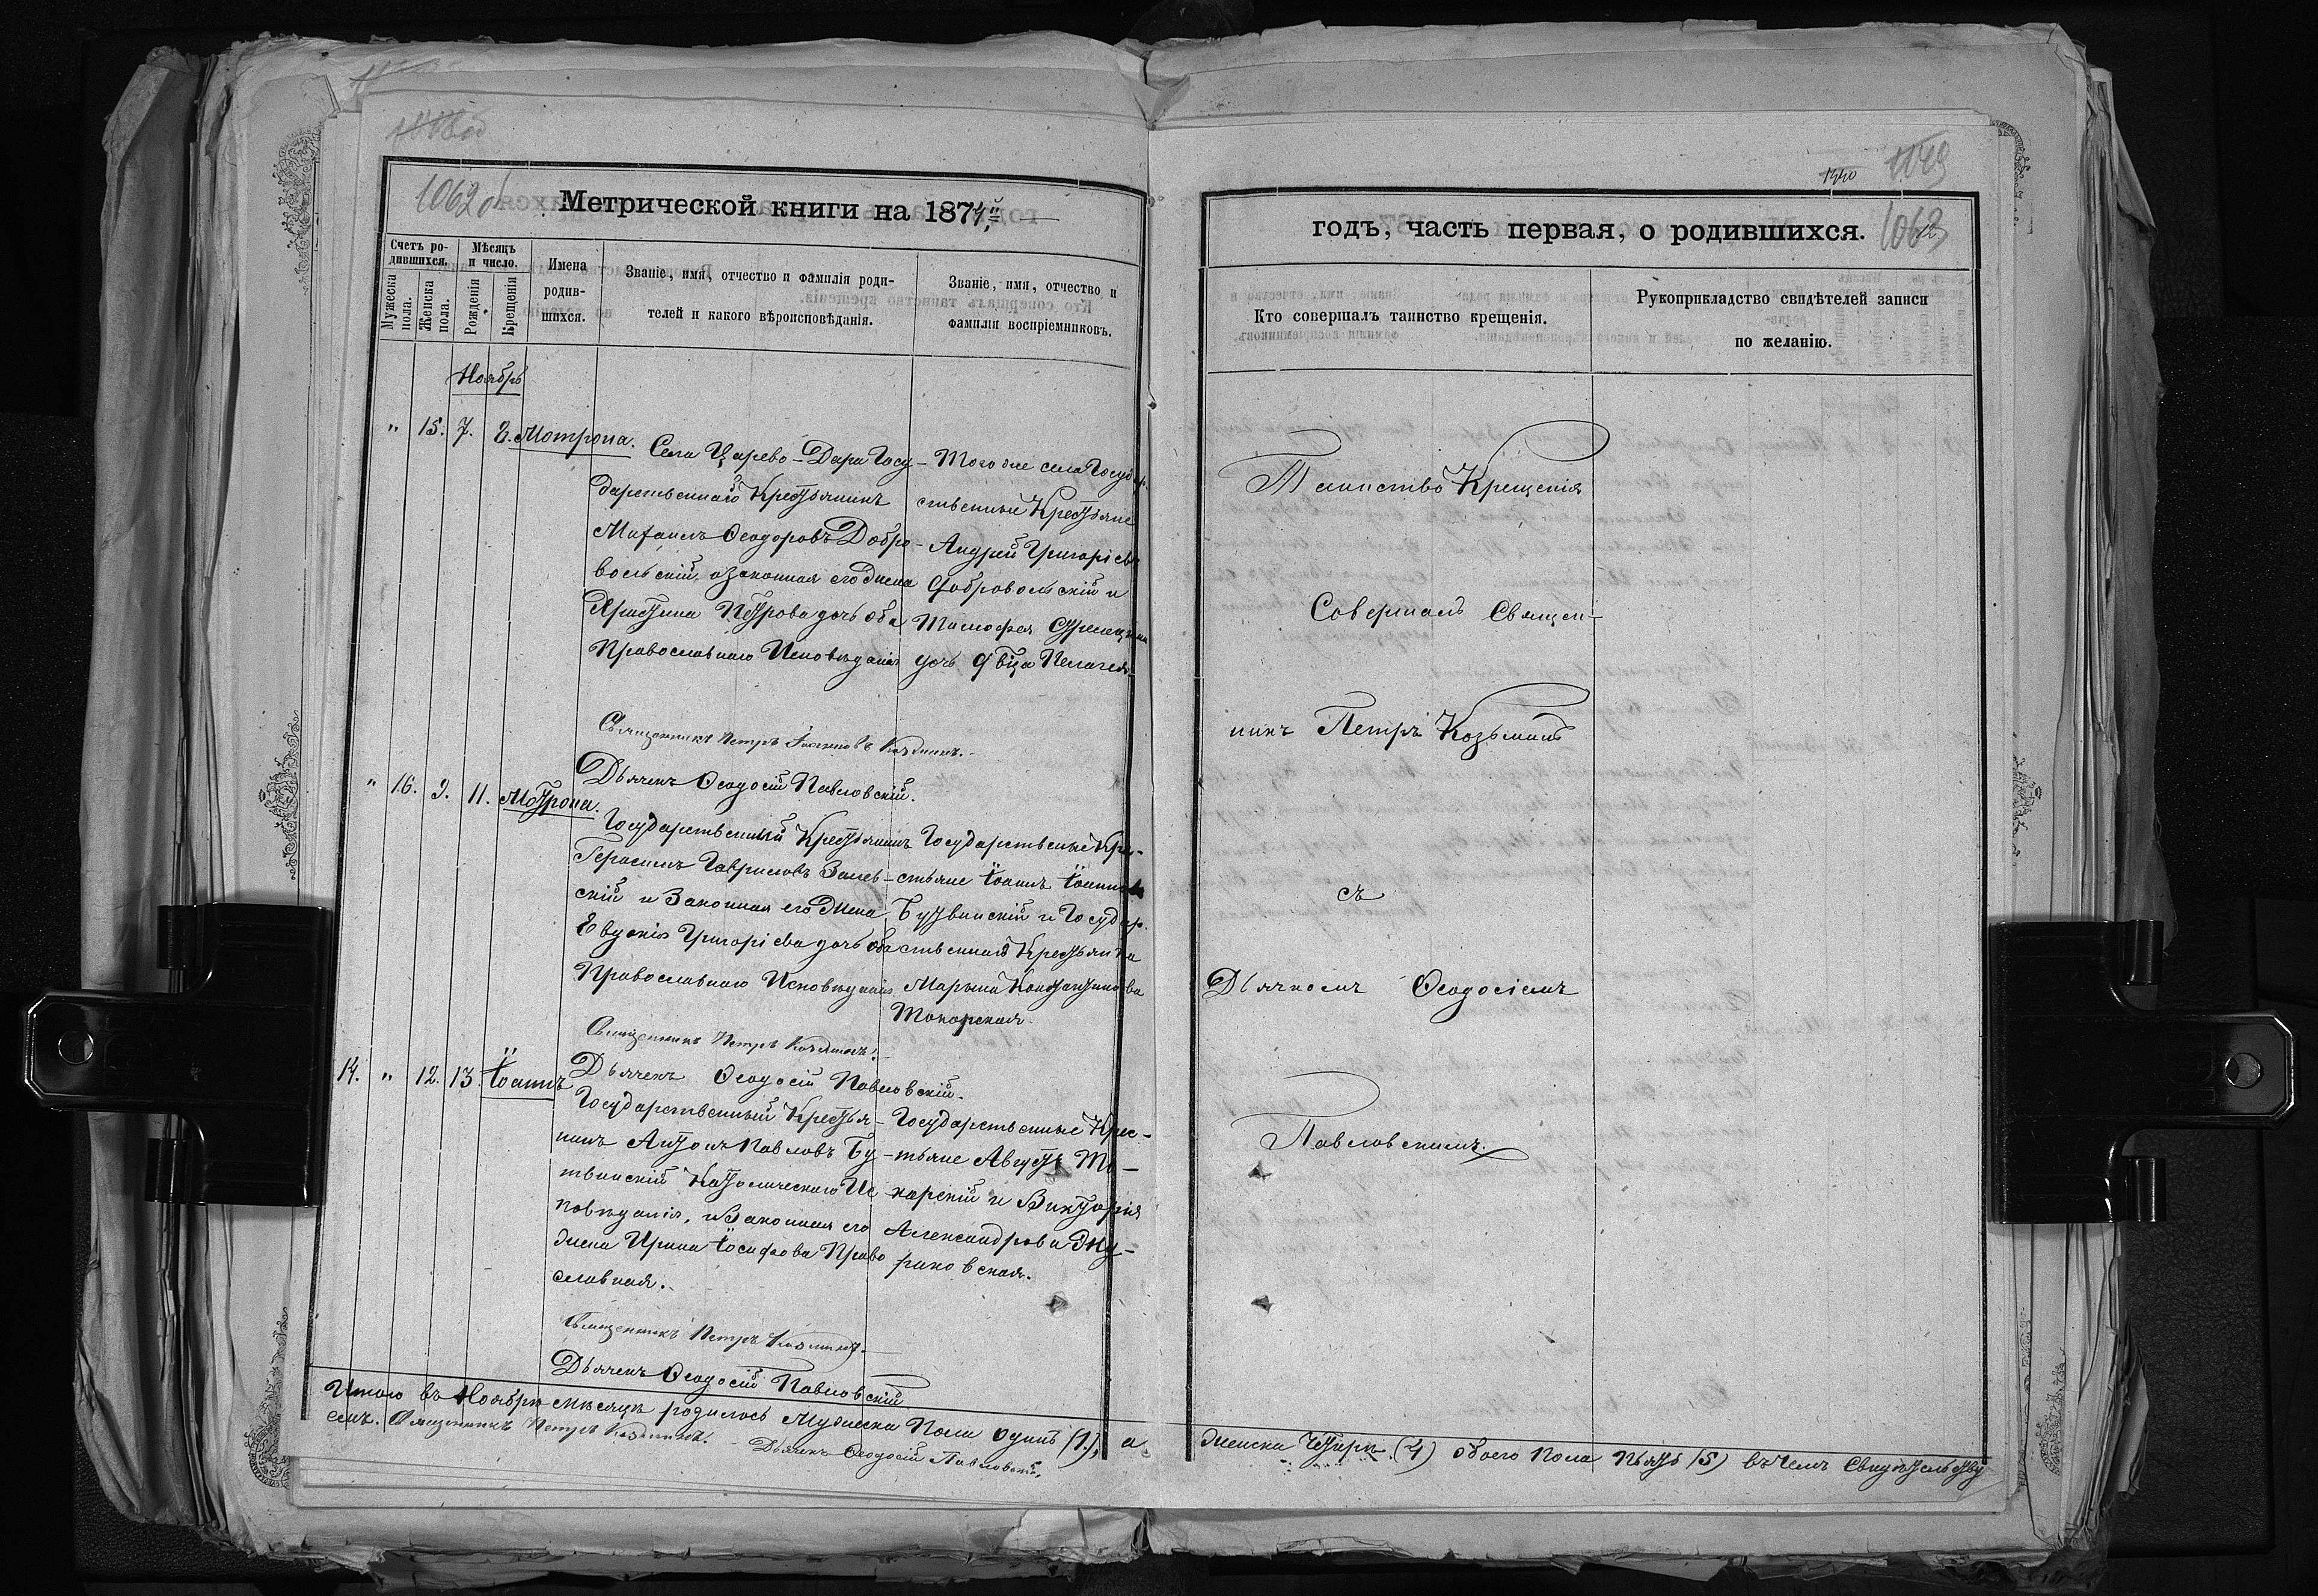 1062 об
Метрической книги на 1874й
Счетъ ро-
дившихся.
Мужеска пола.
Женска пола.
Мѣсяцъ
и число.
Рожденія
Крещенія
Имена
родив-
шихся.
Званіе, имя, отчество и фамилія роди-
телей и какого вѣроисповѣданія.
Званіе, имя, отчество и
фамилія воспріемниковъ.
Ноябрь
" 15. 7. 8. Мотрона.
Села Царево-Дара Госу-
дарственнаго Крестьянинъ
Михаилъ Ѳеодоровъ Добро-
вольскій и законная его жена
Христина Петрова дочь оба
Православнаго Исповѣданія
Того же села Государ-
ственный Крестьяне
Андрей Григоріевъ
Добровольскій и
Тимофея
дочь Дѣвица Пелагея
Священникъ Петръ Іоанновъ Козьминъ.
Дьячекъ Ѳеодосій Павловскій.
" 16. 9. 11. Мотрона.
Государственный Крестьянинъ
Герасимъ Гавриловъ
скій и Законная его Жена
Евдокія Григоріева дочь оба
Православнаго Исповѣданія
Государственные Кре-
стьяне Іоаннъ Іоанновъ
Бутвинскій и Государ-
ственная Крестьянка
Марына Константинова
Токарская
Священникъ Петръ Козьминъ.
Дьячекъ Ѳеодосій Павловскій.
14. " 12. 13. Іоаннъ
Государственный Крестья-
нинъ Антонъ Павловъ Бу-
твинскій Католическаго Ис
повѣданія, и Законная его
жена Ирина Іосифова Право
славная.
Государственные Крес-
тьяне Августъ То-
карскій и Викторія
Александрова Жу-
раковская.
Священникъ Петръ Козьминъ.
Дьячекъ Ѳеодосій Павловскій
Итого въ Ноябрѣ мѣсяцѣ родилось Мужеска Пола одинъ (1.), а
емъ. Священникъ Петръ Козьминъ. Дьячекъ Ѳеодосій Павловскій.
1049
1063
годъ, часть первая, о родившихся.
Кто совершалъ таинство крещенія.
Рукоприкладство свидѣтелей записи
по желанію.
Таинство Крещенія
Совершалъ Священ-
никъ Петръ Козьминъ
съ
Дьячкомъ Ѳеодосіемъ
Павловскимъ.
женска Четыри (4) обоего Пола Пьять (5) въ Чемъ Свидѣтельству